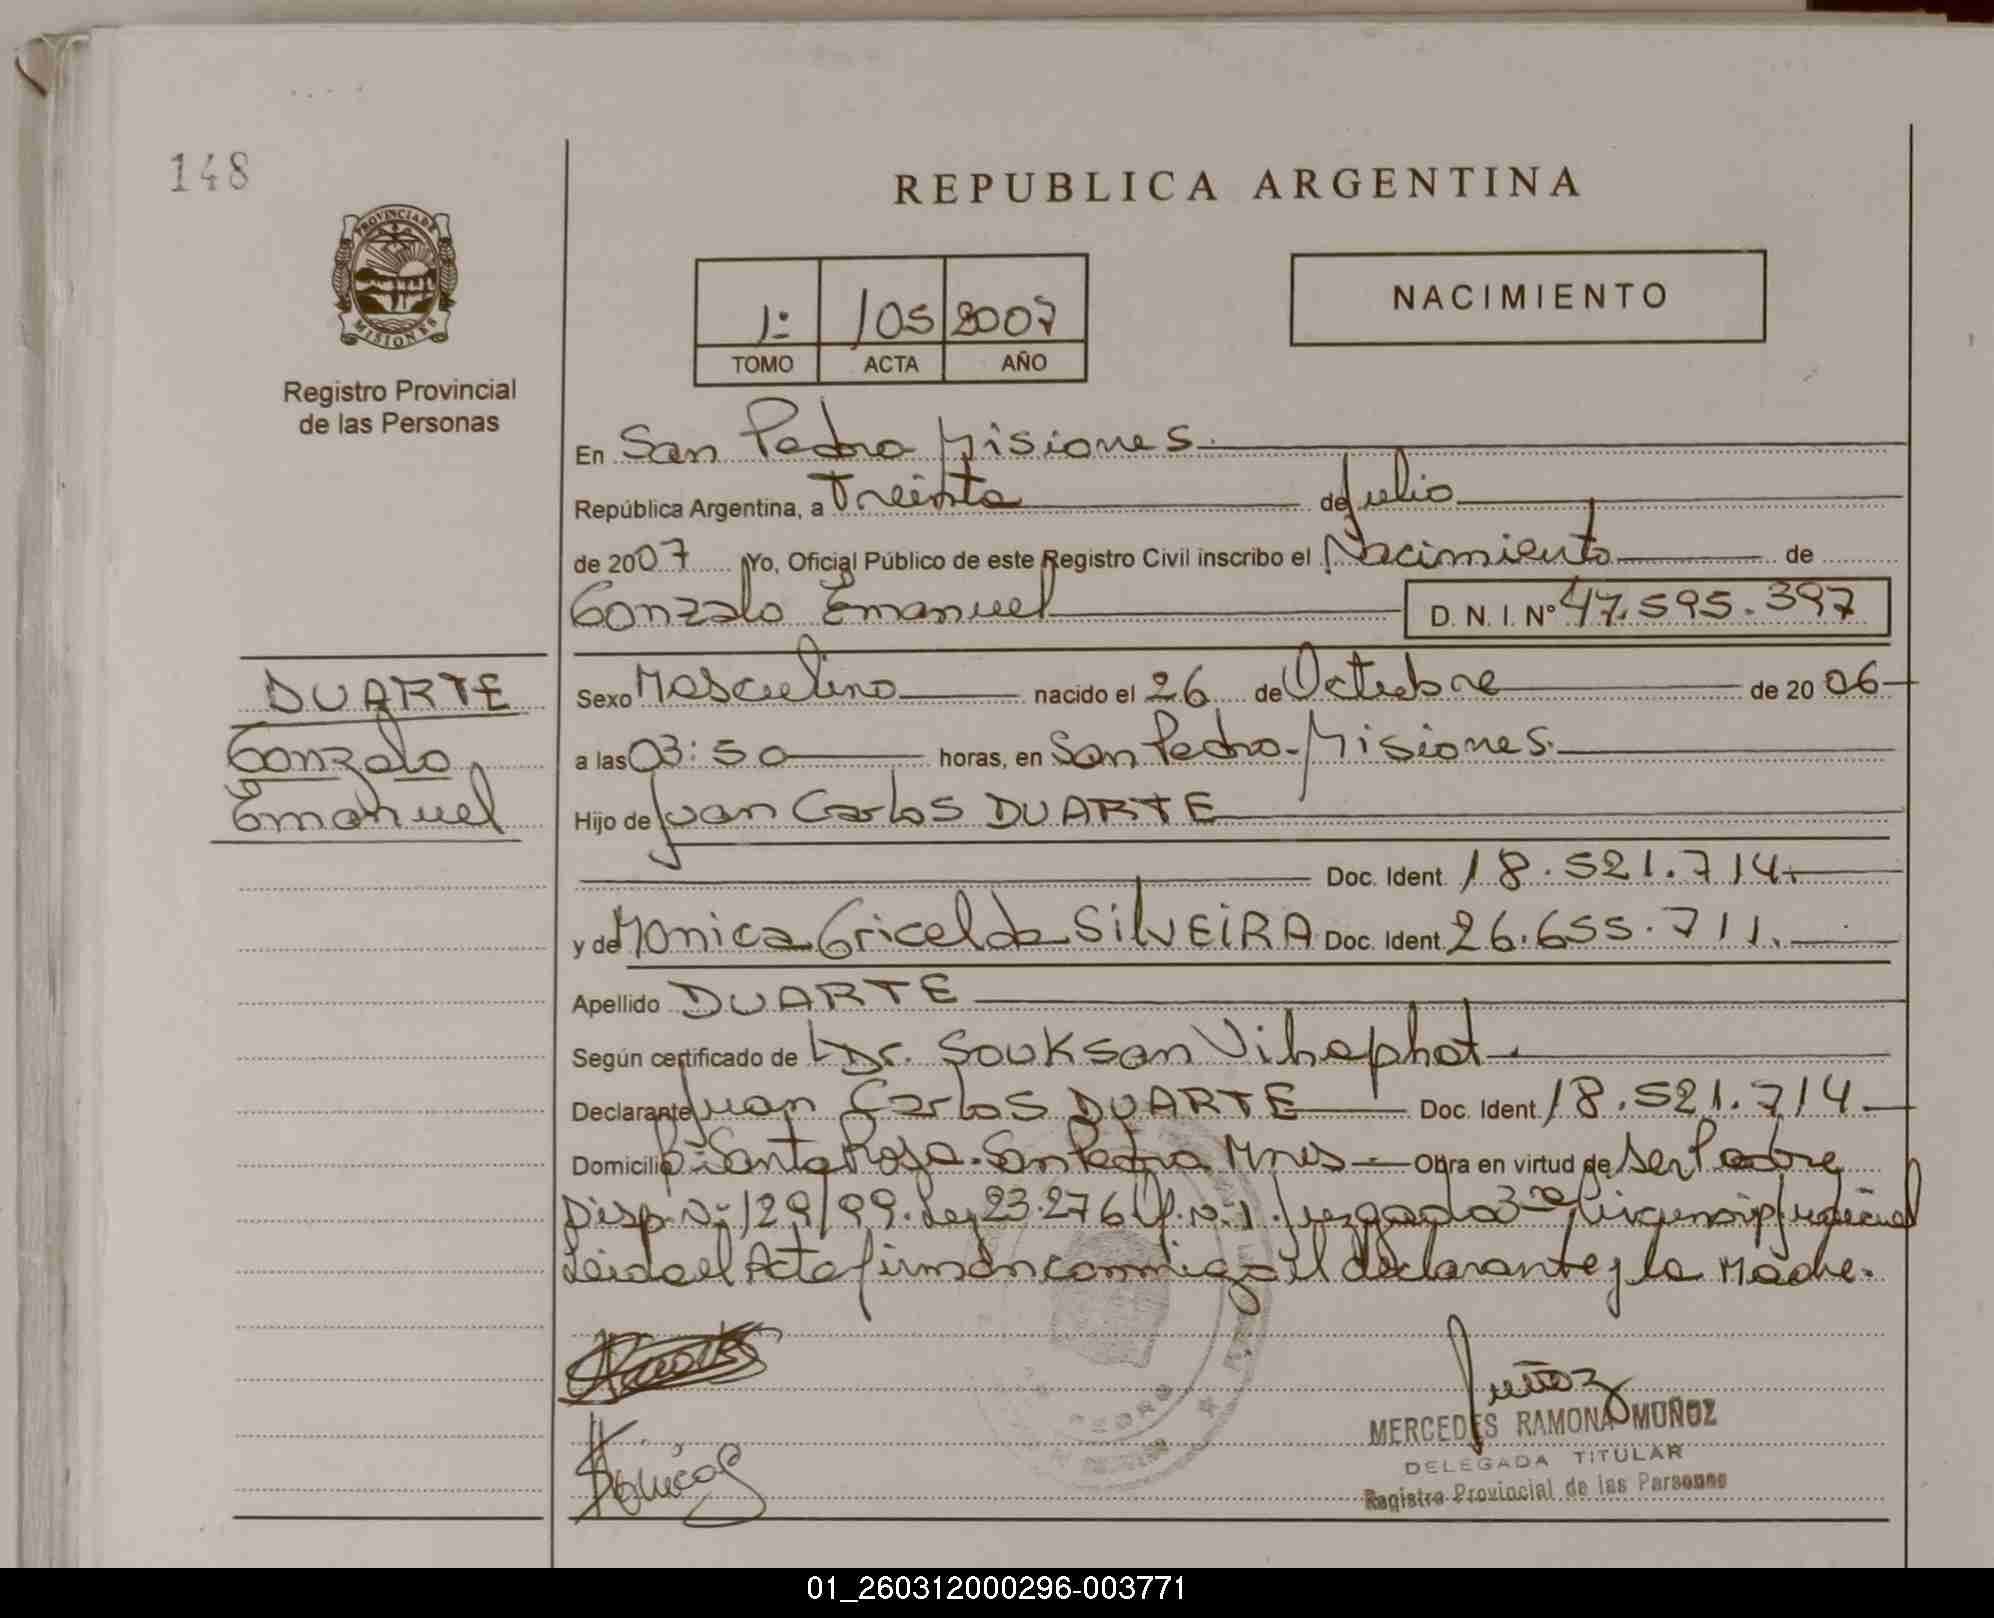 148
PROVINCIA DE
MISIONES
Registro Provincial
de las Personas
REPUBLICA ARGENTINA
1º 105 2007
TOMO ACTA AÑO
NACIMIENTO
En San Pedro Misiones.
República Argentina, a Treinta de Julio
de 2007 Yo, Oficial Público de este Registro Civil inscribo el Nacimiento de
Gonzalo Emanuel D. N. I. Nº 47.595.397
DUARTE
Gonzalo
Emanuel
Sexo Masculino nacido el 26 de Octubre de 2006
a las 03:50 horas, en San Pedro-Misiones.
Hijo de Juan Carlos DUARTE
Doc. Ident. 18.521.714.
y de Monica Gricelda SilVEiRA Doc. Ident. 26.655.711.
Apellido DUARTE
Según certificado de Dr. Souksan Vihaphat.
Declarante Juan Carlos DUARTE Doc. Ident. 18.521.714
Domicilio Bº Santa Rosa. San Pedro Mnes Obra en virtud de ser Padre
Disp. Nº 129/99. Ley 23.276 Of. Nº 1. Juzgado 3ra Judicial
Leida el Acta firman conmigo el declarante y la Madre.
Muñoz
MERCEDES RAMONA MUÑOZ
DELEGADA TITULAR
Registro Provincial de las Personas
PEDRO
01_260312000296-003771